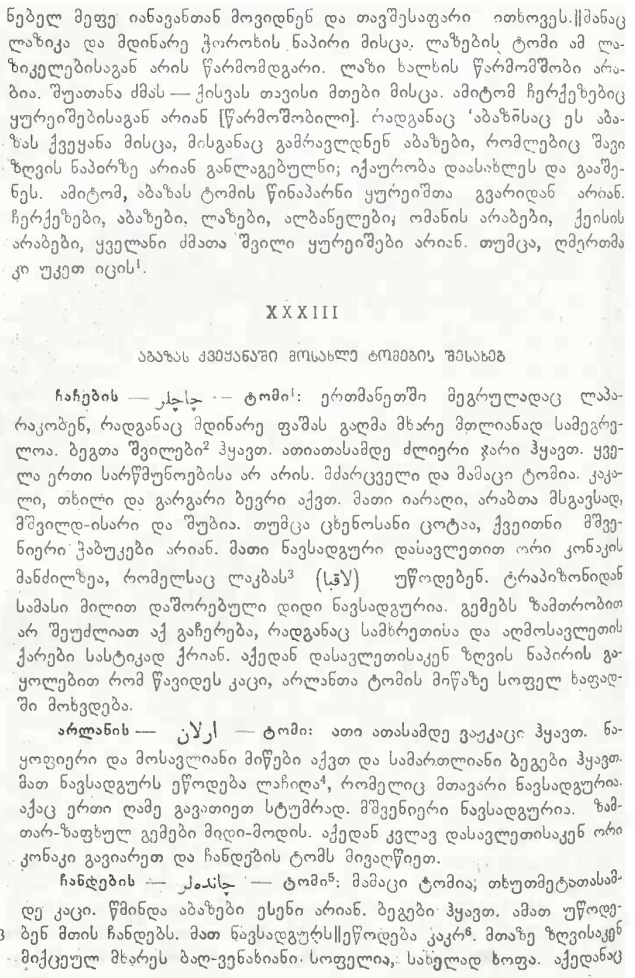 ნებელ მეფე იანავანთან მოვიდნენ და თავშესაფარი ითხოვეს.||მანაც
ლაზიკა და მდინარე ჭოროხის ნაპირი მისცა. ლაზების ტომი ამ ლა-
ზიკელებისაგან არის წარმომდგარი. ლაზი ხალხის წარმომშობი არა-
ბია. შუათანა ძმას — ქისვას თავისი მთები მისცა. ამიტომ ჩერქეზებიც
ყურეიშებისაგან არიან [წარმოშობილი]. რადგანაც აბაზისაც ეს აბა-
ზას ქვეყანა მისცა, მისგანაც გამრავლდნენ აბაზები, რომლებიც შავი
ზღვის ნაპირზე არიან განლაგებულნი; იქაურობა დაასახლეს და გააშე-
ნეს. ამიტომ, აბაზას ტომის წინაპარნი ყურეიშთა გვარიდან არიან.
ჩერქეზები, აბაზები, ლაზები, ალბანელები, ომანის არაბები, ქეისის
არაბები, ყველანი ძმათა შვილი ყურეიშები არიან. თუმცა, ღმერთმა
კი უკეთ იცის¹.
XXXIII
აბაზას ქვეყანაში მოსახლე ტომების შესახებ
ჩაჩების — چاچلر — ტომი¹: ერთმანეთში მეგრულადაც ლაპა-
რაკობენ, რადგანაც მდინარე ფაშას გაღმა მხარე მთლიანად სამეგრე-
ლოა. ბეგთა შვილები² ჰყავთ. ათიათასამდე ძლიერი ჯარი ჰყავთ. ყვე-
ლა ერთი სარწმუნოებისა არ არის. მძარცველი და მამაცი ტომია. კაკა-
ლი, თხილი და გარგარი ბევრი აქვთ. მათი იარაღი, არაბთა მსგავსად,
მშვილდ-ისარი და შუბია. თუმცა ცხენოსანი ცოტაა, ქვეითნი მშვე-
ნიერი ჭაბუკები არიან. მათი ნავსადგური დასავლეთით ორი კონაკის
მანძილზეა, რომელსაც ლაკბას³ (لاقبا) უწოდებენ. ტრაპიზონიდან
სამასი მილით დაშორებული დიდი ნავსადგურია. გემებს ზამთრობით
არ შეუძლიათ აქ გაჩერება, რადგანაც სამხრეთისა და აღმოსავლეთის
ქარები სასტიკად ქრიან. აქედან დასავლეთისაკენ ზღვის ნაპირის გა-
ყოლებით რომ წავიდეს კაცი, არლანთა ტომის მიწაზე სოფელ ხაფად-
ში მოხვდება.
არლანის — ارلان — ტომი: ათი ათასამდე ვაჟკაცი ჰყავთ. ნა-
ყოფიერი და მოსავლიანი მიწები აქვთ და სამართლიანი ბეგები ჰყავთ.
მათ ნავსადგურს ეწოდება ლაჩიღა⁴, რომელიც მთავარი ნავსადგურია.
აქაც ერთი ღამე გავათიეთ სტუმრად. მშვენიერი ნავსადგურია. ზამ-
თარ-ზაფხულ გემები მიდი-მოდის. აქედან კვლავ დასავლეთისაკენ ორი
კონაკი გავიარეთ და ჩანდების ტომს მივაღწიეთ.
ჩანდების — چاندەلر — ტომი⁵: მამაცი ტომია; თხუთმეტათასამ-
დე კაცი. წმინდა აბაზები ესენი არიან. ბეგები ჰყავთ. ამათ უწოდე-
ბენ მთის ჩანდებს. მათ ნავსადგურს||ეწოდება კაკრ⁶. მთაზე ზღვისაკენ
მიქცეულ მხარეს ბაღ-ვენახიანი სოფელია, სახელად ხოფა. აქედანაც